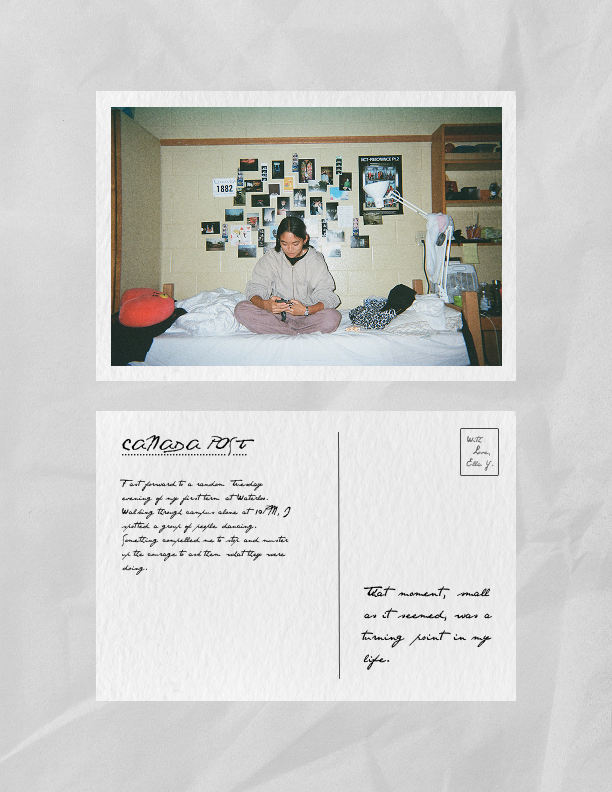 1882
NCT-RESONANCE Pt.2
CANADA POST
Fast forward to a random Tuesday
evening of my first term at Waterloo.
Walking through campus alone at 10 PM, I
spotted a group of people dancing.
Something compelled me to stop and muster
up the courage to ask them what they were
doing.
With
Love,
Ella Y.
That moment, small
as it seemed, was a
turning point in my
life.